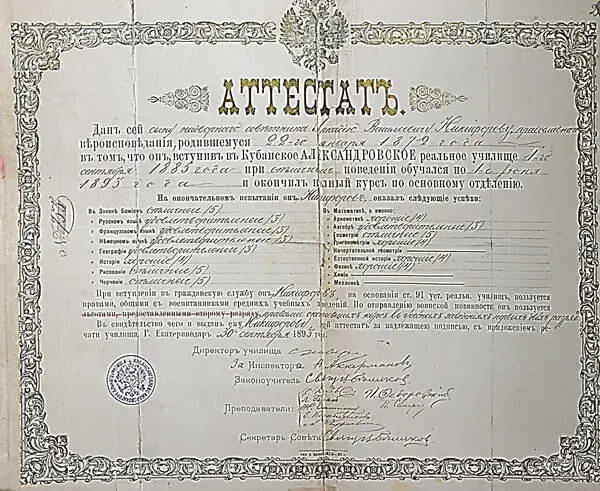 АТТЕСТАТЪ.
Данъ сей сыну надворнаго совѣтника Аркадію Васильевичу Никифорову, православнаго
вѣроисповѣданія, родившемуся 22-го января 1872 года
въ томъ, что онъ, вступивъ въ Кубанское АЛЕКСАНДРОВСКОЕ реальное училище 1-го
сентября 1885 года при отличномъ поведеніи обучался по 1е іюня
1893 года и окончилъ полный курсъ по основному отдѣленію.
На окончательномъ испытаніи онъ, Никифоровъ, оказалъ слѣдующіе успѣхи:
Въ Законѣ Божіемъ отличные (5)
" Русскомъ языкѣ удовлетворительные (3)
" Французскомъ языкѣ удовлетворительные (3)
" Нѣмецкомъ языкѣ удовлетворительные (3)
" Географіи удовлетворительные (3)
" Исторіи хорошіе (4)
" Рисованіи отличные (5)
" Черченіи отличные (5)
Въ Математикѣ, а именно:
Ариѳметикѣ хорошіе (4)
Алгебрѣ удовлетворительные (3)
Геометріи отличные (5)
Тригонометріи хорошіе (4)
" Начертательной геометріи
" Естественной исторіи хорошіе (4)
" Физикѣ хорошіе (4)
" Химіи
" Механикѣ
При вступленіи въ гражданскую службу онъ, Никифоровъ, на основаніи ст. 91 уст. реальн. училищъ, пользуется
правами, общими съ воспитанниками среднихъ учебныхъ заведеній. По отправленію воинской повинности онъ пользуется
льготами, предоставленными второму разряду
Въ свидѣтельство чего и выданъ ему, Никифорову, сей аттестатъ за надлежащею подписью, съ приложеніемъ печати училища. Г. Екатеринодаръ. 30го сентября 1893 года.
Директоръ училища
За Инспектора А. Аккермановъ
Законоучитель
Преподаватели:
Секретарь Совѣта